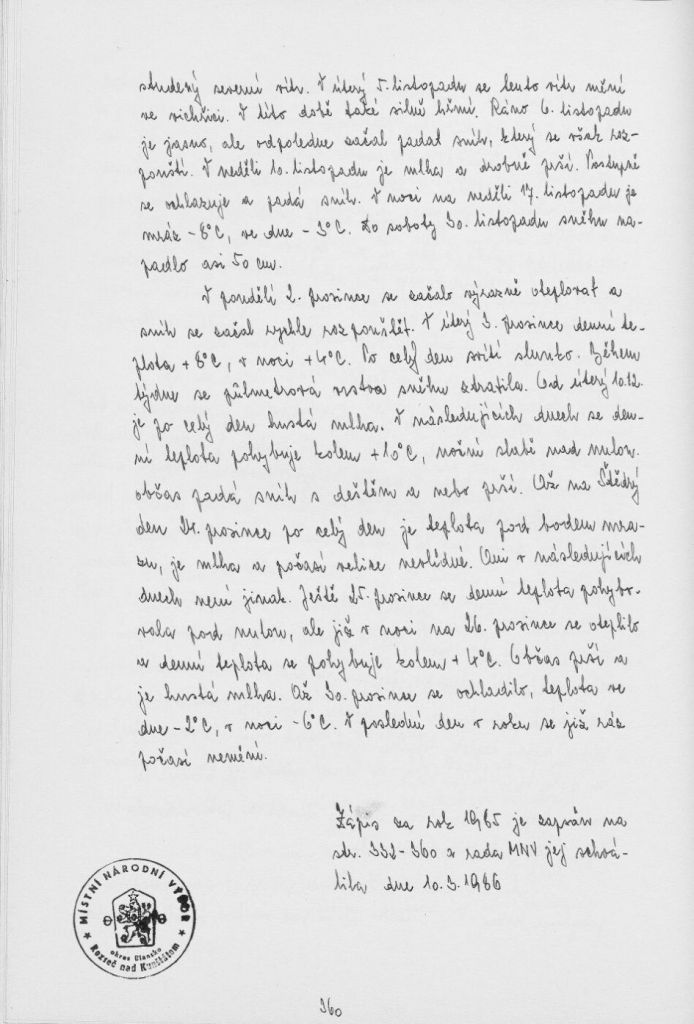 studený severní vítr. V úterý 5. listopadu se tento vítr mění
ve vichřici. V této době také silně hřmí. Ráno 6. listopadu
je jasno, ale odpoledne začal padat sníh, který se však roz-
pouští. V neděli 10. listopadu je mlha a drobně prší. Postupně
se ochlazuje a padá sníh. V noci na neděli 17. listopadu je
mráz -8°C, ve dne -3°C. Do soboty 30. listopadu sněhu na-
padlo asi 50 cm.
V pondělí 2. prosince se začalo výrazně oteplovat a
sníh se začal rychle rozpouštět. V úterý 3. prosince denní te-
plota +8°C, v noci +4°C. Po celý den svítí slunko. Během
týdne se půlmetrová vrstva sněhu ztratila. Od úterý 10.12.
je po celý den hustá mlha. V následujících dnech se den-
ní teplota pohybuje kolem +10°C, noční slabě nad nulou.
občas padá sníh s deštěm a nebo prší. Až na Štědrý
den 24. prosince po celý den je teplota pod bodem mra-
zu, je mlha a počasí velice nevlídné. Ani v následujících
dnech není jinak. Ještě 25. prosince se denní teplota pohybo-
vala pod nulou, ale již v noci na 26. prosince se oteplilo
a denní teplota se pohybuje kolem +4°C. Občas prší a
je hustá mlha. Až 30. prosince se ochladilo, teplota ve
dne -2°C, v noci -6°C. V poslední den v roku se již ráz
počasí nemění.
Zápis za rok 1985 je zapsán na
str. 332-360 a rada MNV jej schvá-
lila dne 10.3.1986
MÍSTNÍ NÁRODNÍ VÝBOR
okres Blansko
Rozseč nad Kunštátem
360